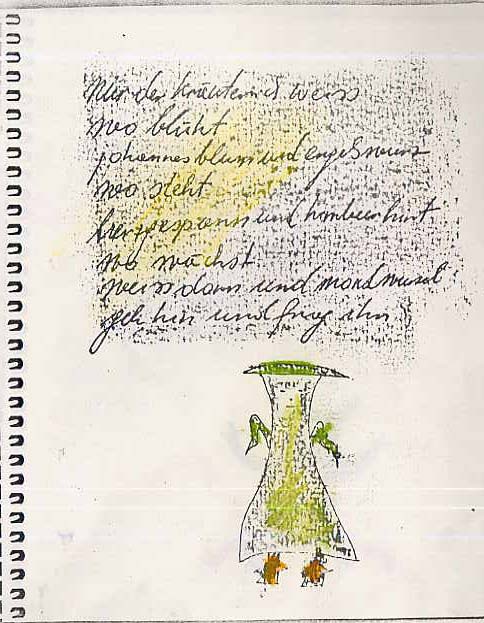 Nur der kräutermed weiss
wo blüht
johannesblum und engelswurz
wo steht
herzgespann und himbeer
wo wächst
weissdorn und mondwurzel
geh hin und frag ihn